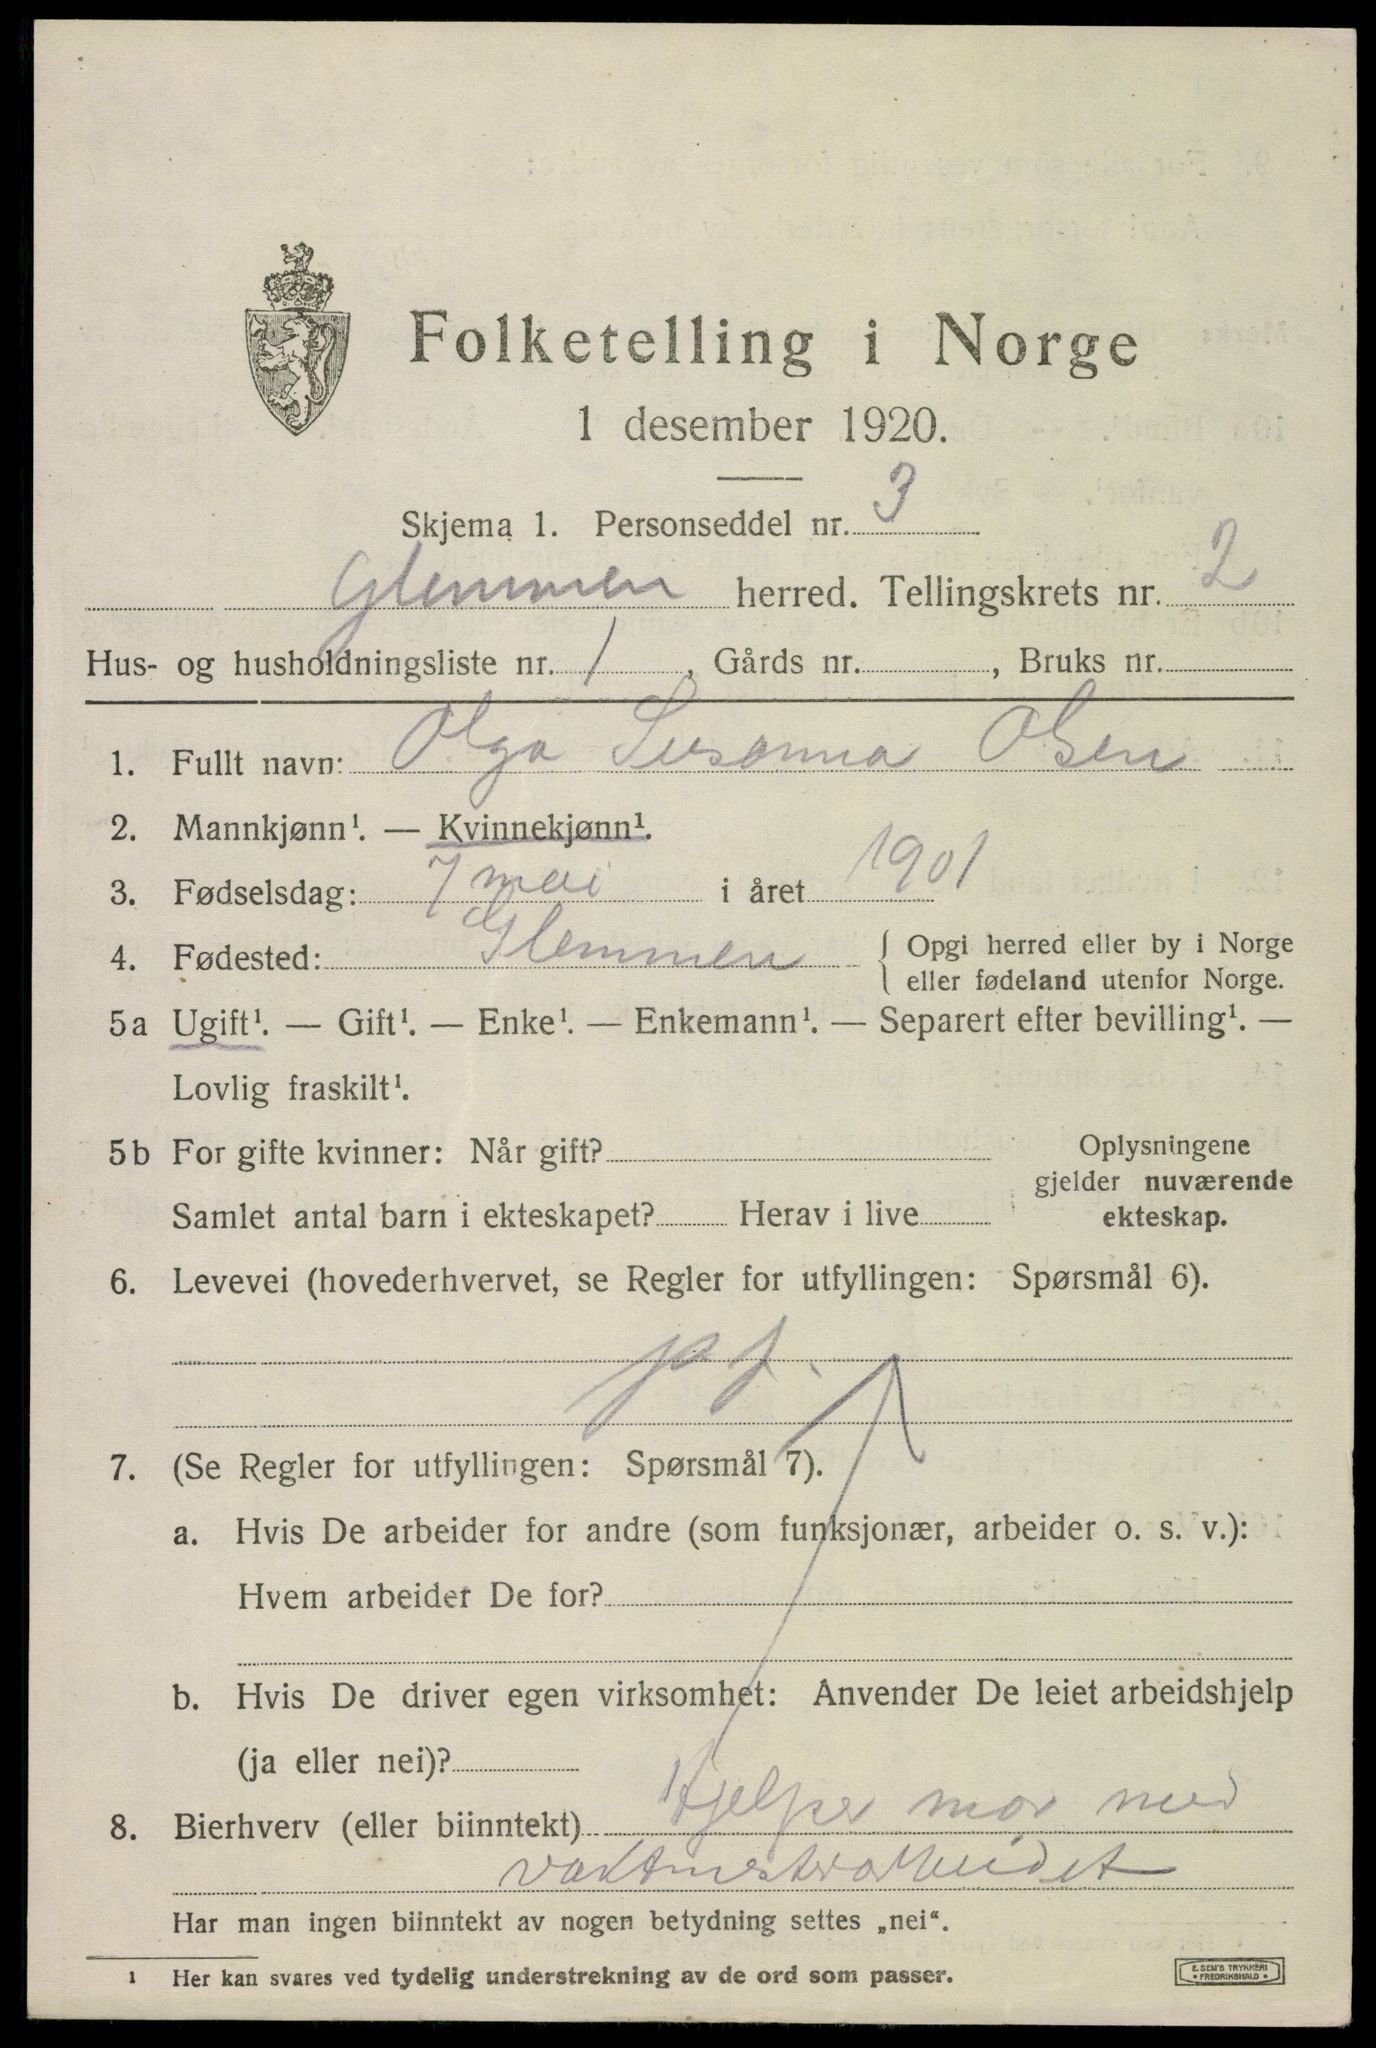 Folketelling i Norge
1 desember 1920.
Skjema 1. Personseddel nr. 3
Glemmen herred. Tellingskrets nr. 2
Hus- og husholdningsliste nr. 1, Gårds nr. , Bruks nr.
1. Fullt navn: Olga Susanna Olsen
2. Mannkjønn¹. — Kvinnekjønn¹.
3. Fødselsdag: 7 mai i året 1901
4. Fødested: Glemmen { Opgi herred eller by i Norge
eller fødeland utenfor Norge.
5a Ugift¹. — Gift¹. — Enke¹. — Enkemann¹. — Separert efter bevilling¹. —
Lovlig fraskilt¹.
5b For gifte kvinner: Når gift?
Samlet antal barn i ekteskapet? Herav i live
Oplysningene
gjelder nuværende
ekteskap.
6. Levevei (hovederhvervet, se Regler for utfyllingen: Spørsmål 6).
7. (Se Regler for utfyllingen: Spørsmål 7).
a. Hvis De arbeider for andre (som funksjonær, arbeider o. s. v.):
Hvem arbeider De for?
b. Hvis De driver egen virksomhet: Anvender De leiet arbeidshjelp
(ja eller nei)?
8. Bierhverv (eller biinntekt) Hjelper mor med
vaktmesterarbeidet
Har man ingen biinntekt av nogen betydning settes „nei“.
¹ Her kan svares ved tydelig understrekning av de ord som passer.
E. SEM'S TRYKKERI
• FREDRIKSHALD •